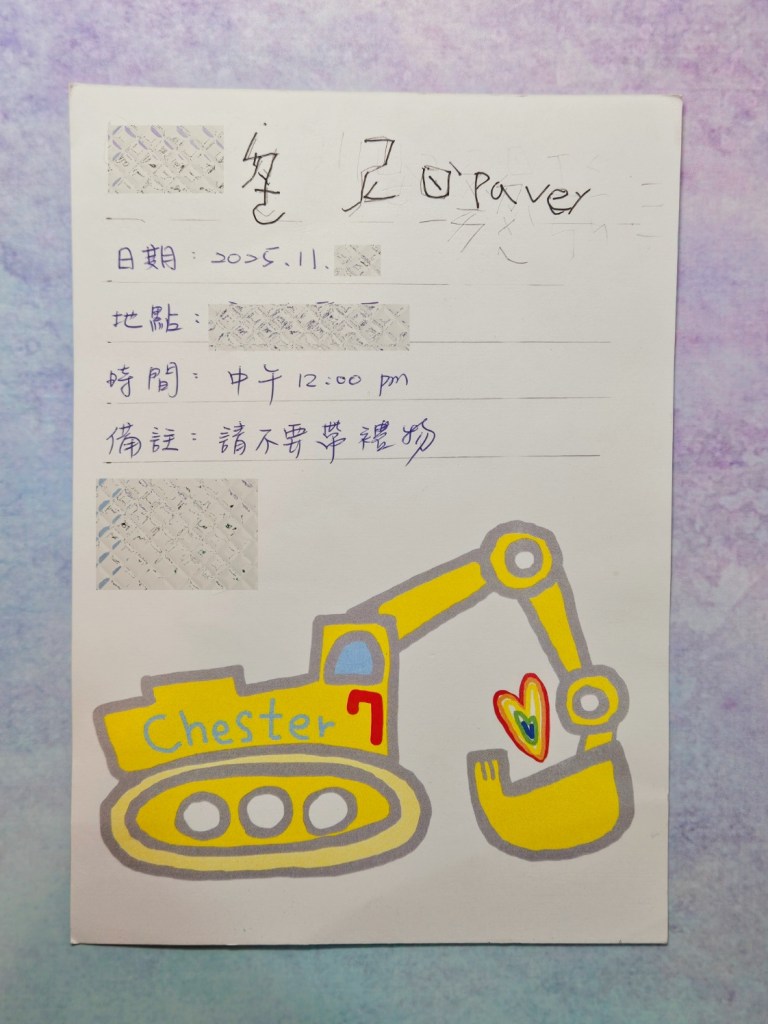 paver
日期：2025.11.
地點：
時間：中午 12:00 pm
備註：請不要帶禮物
Chester 7